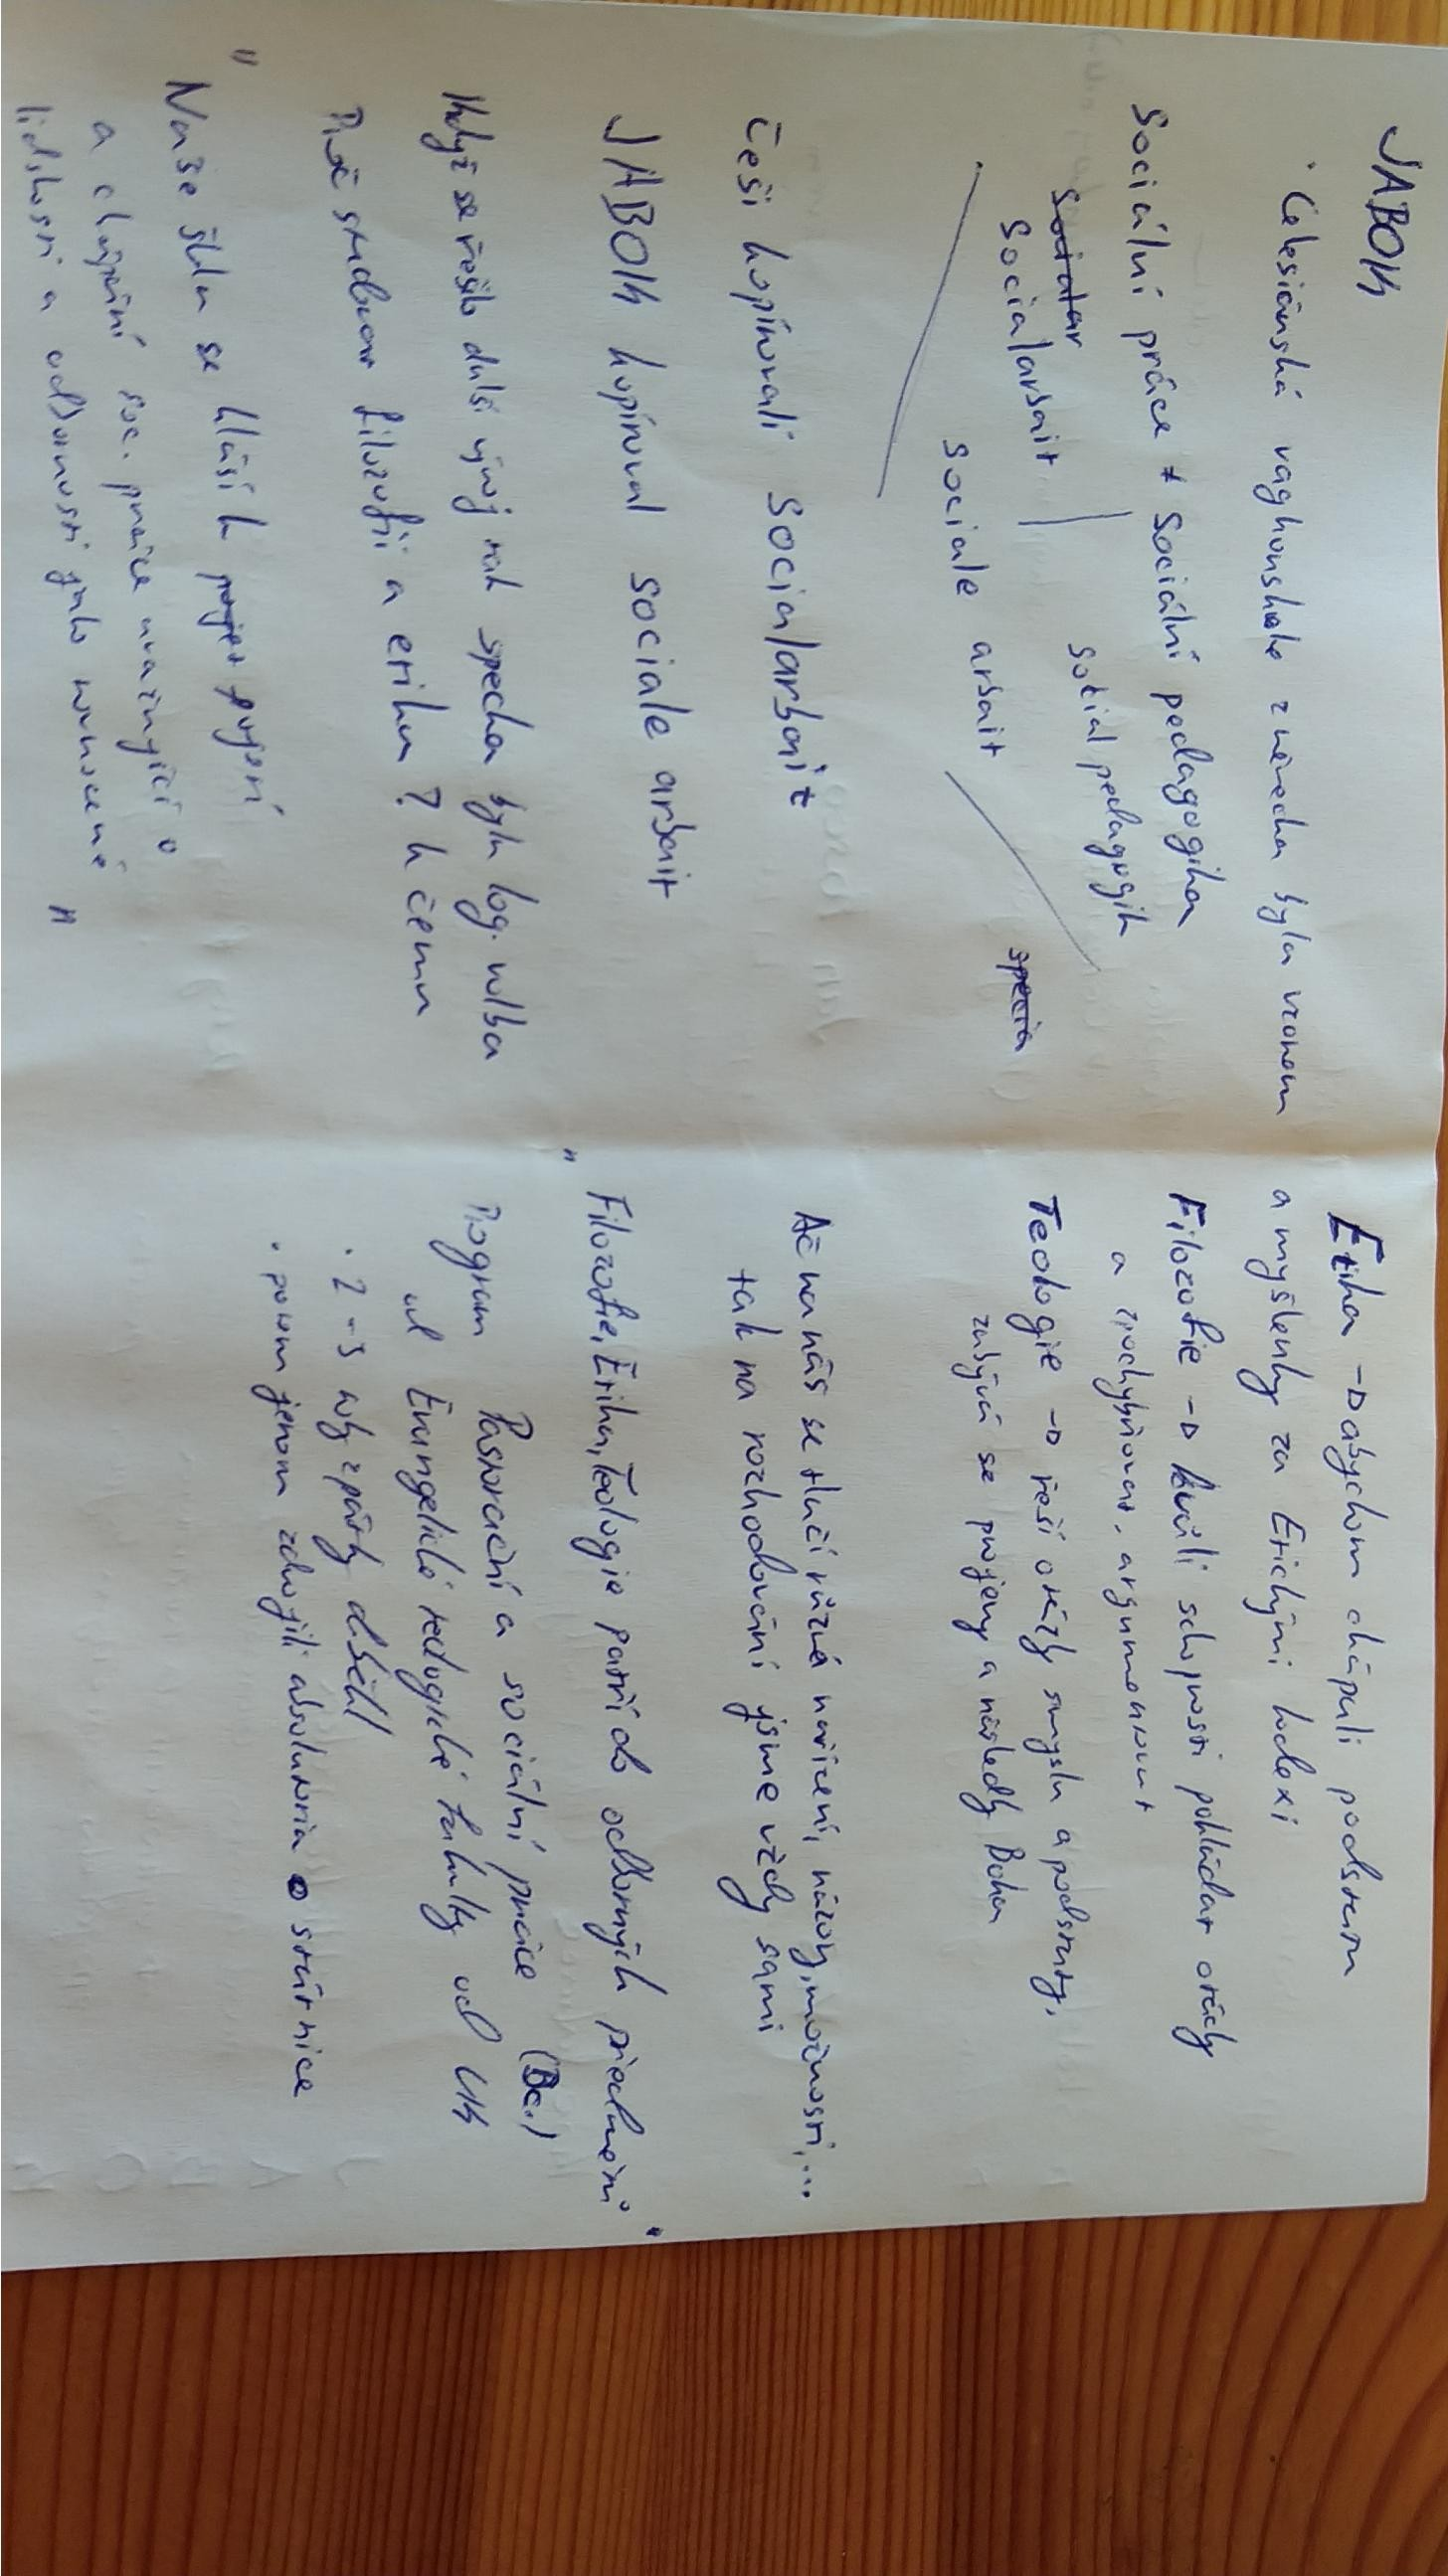 JABOK
· Celesiánská vaghonskola z německa byla vzorem
Sociální práce + Sociální pedagogika
Socialar
Socialarbait | Sotial pedagogik
Sociale arbait
specia
Češi kopírovali Socialarbait
JABOK kopíroval sociale arbait
Když se řešilo další vývoj tak specka byla log. volba
Proč studovat filozofii a etiku? k čemu
"Naše škla se hlásí k pojet pojetí
a chápání soc. práce uvažující o
lidskosti a odbornosti jako rovnocené"
Etika → abychom chápali podstatu
a myšlenky za Etickými kodexi
Filozofie → kvůli schpnosti pokládat otázky
a zpochybňovat, argumentovat
Teologie → řeší otázky smyslu a podstaty,
zabývá se projevy a následky Boha
Ač na nás se tlačí různá nařízení, názory, možnosti,...
tak na rozhodování jsme vždy sami
"Filozofie, Etika, Teologie patří do odborných předmětů"
Program Pastorační a sociální práce (Bc.)
od Evangelické teologické fakulty od UK
· 2-3 roky zpátky dběhl
· potom jenom zdvojili absolutoria a státnice